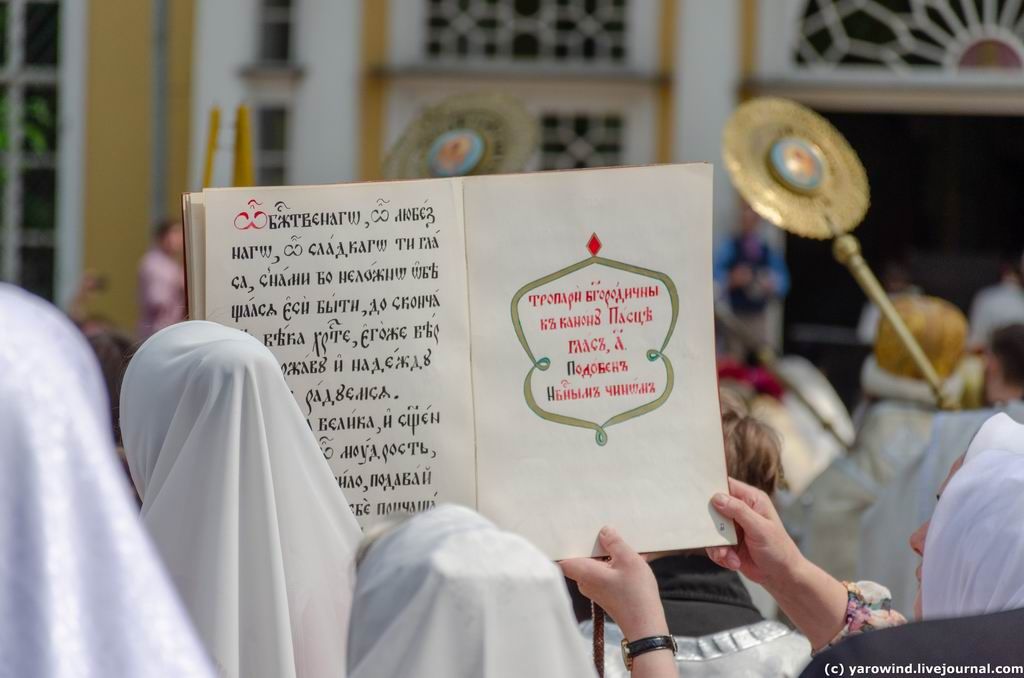 Ѽ бж҃твенагѡ, ѽ любез
нагѡ, ѽ сла́дкагѡ ти гла́
са, с на́ми бо нело́жнѡ ѡ҆бѣ
ща́лсѧ є҆сѝ бы́ти, до сконча́
вѣ́ка хрⷭ҇тѐ, є҆го́же вѣ́р
ржа́вꙋ и҆ наде́ждꙋ
ра́дꙋемсѧ.
вели́ка, и҆ сщ҃е́н
ѽ мꙋ́дрость,
подава́й
причаща́
тропарѝ бг҃оро́дичны
къ кано́нꙋ Па́сцѣ
гла́съ, а҃.
Подо́бенъ
Нбⷭ҇нымъ чинѡ́мъ
(c) yarowind.livejournal.com